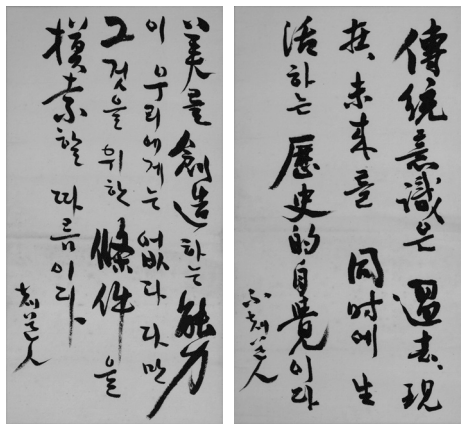 傳統意識은 過去、現
在、未来를 同時에 生
活하는 歷史的自覺이다
美를 創造하는 能力
이 우리에게는 없다 다만
그것을 위한 條件을
摸索할 따름이다.